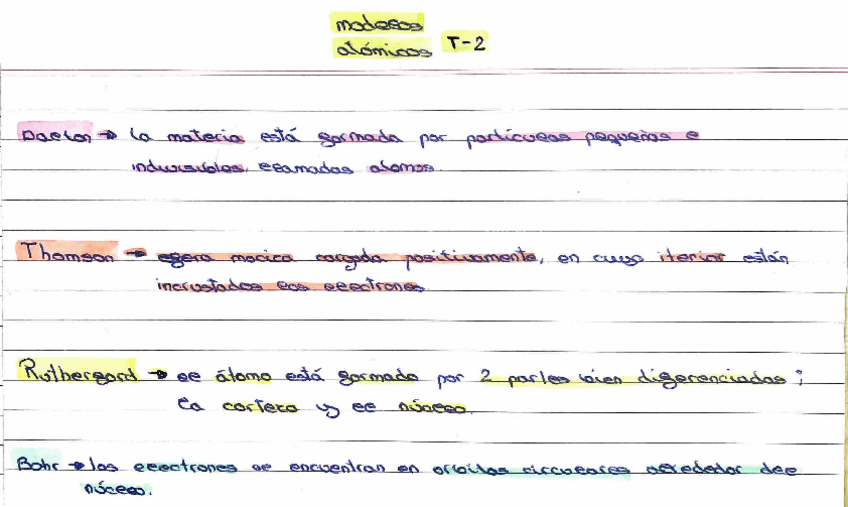 modelos
atómicos T-2
Dalton → la materia está formada por partículas pequeñas e
indivisibles, llamadas atomos.
Thomson → esfera maciza cargada positivamente, en cuyo iterior están
incrustados los electrones
Rutherford → el átomo está formado por 2 partes bien diferenciadas;
la corteza y el núcleo.
Bohr → los electrones se encuentran en orbitas circulares alrededor del
núcleo.